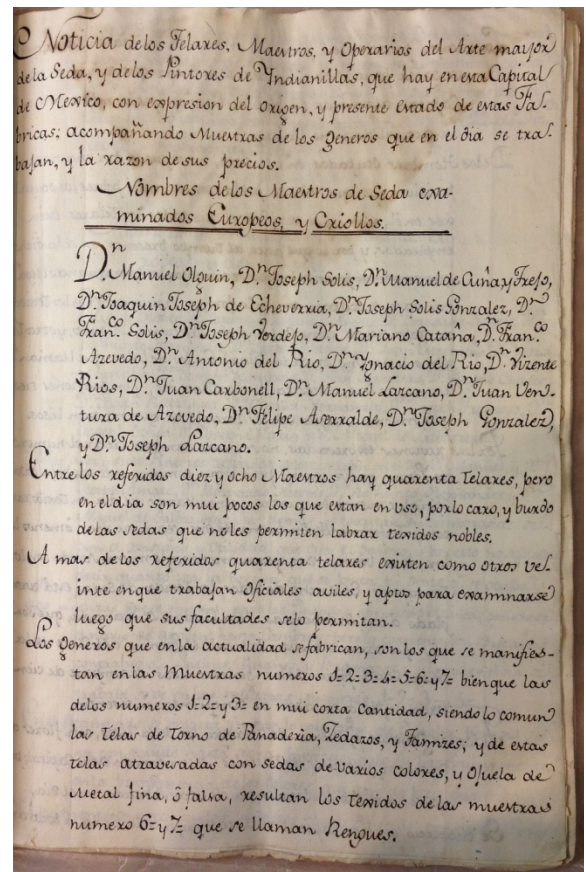 Noticia delos Telares, Maestros, y Operarios del Arte mayor
dela Seda, y delos Pintores de Yndianillas, que hay en esta Capital
de Mexico, con expresion del origen, y presente estado de estas Fa-
bricas; acompañando Muestras de los generos que en el dia se tra-
bajan, y la razon de sus precios.
Nombres delos Maestros de Seda exa-
minados Europeos, y Criollos.
Dn. Manuel Olguin, Dn. Joseph Solis, Dn. Manuel de Cuña y Trejo,
Dn. Joaquin Joseph de Echeverria, Dn. Joseph Solis Gonzalez, Dn.
Franco. Solis, Dn. Joseph Verdejo, Dn. Mariano Cataña, Dn. Franco.
Azevedo, Dn. Antonio del Rio, Dn. Ygnacio del Rio, Dn. Vizente
Rios, Dn. Juan Carbonell, Dn. Manuel Lazcano, Dn. Juan Ven-
tura de Azevedo, Dn. Felipe Aserralde, Dn. Joseph Gonzalez,
y Dn. Joseph Lazcano.
Entre los referidos diez y ocho Maestros hay quarenta Telares, pero
en el dia son mui pocos los que están en uso, por lo caro, y burdo
delas sedas que no les permiten labrar texidos nobles.
A mas de los referidos quarenta telares existen como otros ve-
inte en que trabajan Oficiales aviles, y aptos para examinarse
luego que sus facultades selo permitan.
Los generos que en la actualidad se fabrican, son los que se manifies-
tan en las Muestras numeros 1= 2= 3= 4= 5= 6= y 7= bien que las
delos numeros 1= 2= y 3= en mui corta cantidad, siendo lo comun
las Telas de Torno de Panaderia, Zedazos, y Tamizes; y de estas
telas atravesadas con sedas de varios colores, y Ojuela de
Metal fina, ô falsa, resultan los Texidos de las muestras
numero 6= y 7= que se llaman Rengues.